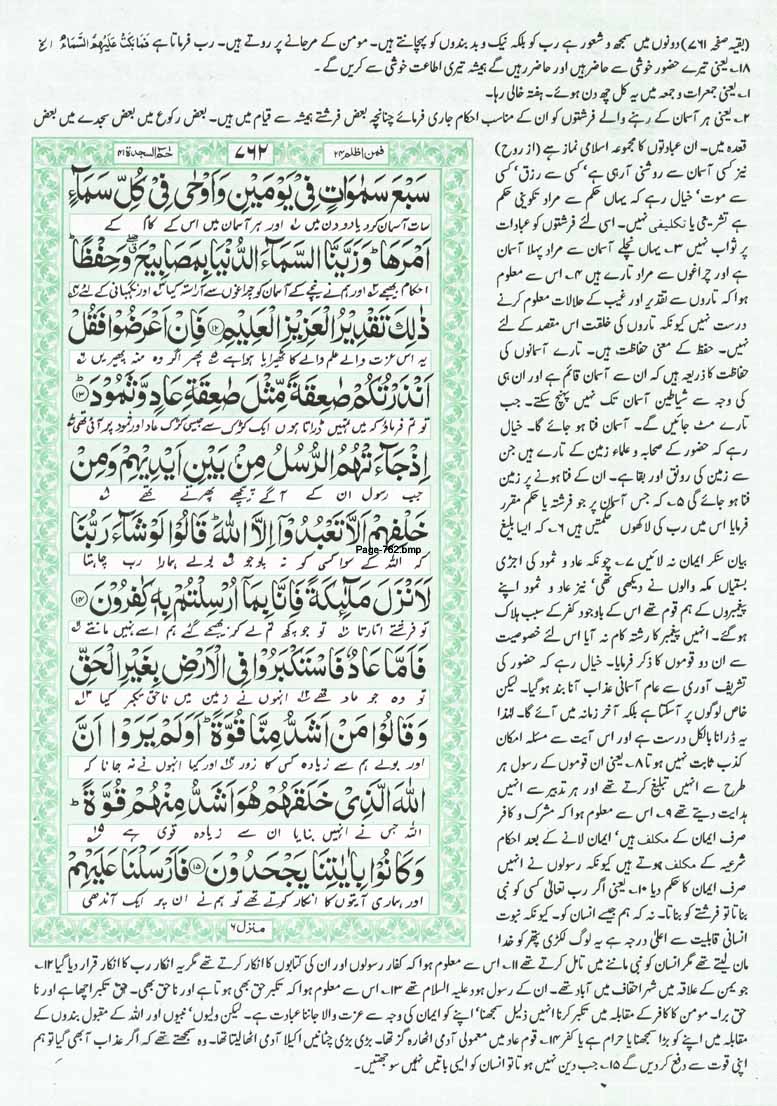 (بقیہ صفحہ ۷۶۱) دونوں میں سمجھ و شعور ہے رب کو بلکہ نیک و بد بندوں کو پہچانتے ہیں۔ مومن کے مرجانے پر روتے ہیں۔ رب فرماتا ہے فَمَا بَكَتْ عَلَيْهِمُ السَّمَاءُ الخ
۱۸۔ یعنی تیرے حضور خوشی سے حاضر ہیں اور حاضر رہیں گے ہمیشہ تیری اطاعت خوشی سے کریں گے۔
۱۔ یعنی جمعرات و جمعہ میں یہ کل چھ دن ہوئے۔ ہفتہ خالی رہا۔
۲۔ یعنی ہر آسمان کے رہنے والے فرشتوں کو ان کے مناسب احکام جاری فرمائے چنانچہ بعض فرشتے ہمیشہ سے قیام میں ہیں۔ بعض رکوع میں بعض سجدے میں بعض
قعدہ میں۔ ان عبادتوں کا مجموعہ اسلامی نماز ہے (از روح)
نیز کسی آسمان سے روشنی آرہی ہے، کسی سے رزق، کسی
سے موت، خیال رہے کہ یہاں حکم سے مراد تکوینی حکم
ہے تشریعی یا تکلیفی نہیں۔ اسی لئے فرشتوں کو عبادات
پر ثواب نہیں ۳۔ یہاں نچلے آسمان سے مراد پہلا آسمان
ہے اور چراغوں سے مراد تارے ہیں ۴۔ اس سے معلوم
ہوا کہ تاروں سے تقدیر اور غیب کے حالات معلوم کرنے
درست نہیں کیونکہ تاروں کی خلقت اس مقصد کے لئے
نہیں۔ حفظ کے معنی حفاظت ہیں۔ تارے آسمانوں کی
حفاظت کا ذریعہ ہیں کہ ان سے آسمان قائم ہے اور ان ہی
کی وجہ سے شیاطین آسمان تک نہیں پہنچ سکتے۔ جب
تارے مٹ جائیں گے۔ آسمان فنا ہو جائے گا۔ خیال
رہے کہ حضور کے صحابہ و علماء زمین کے تارے ہیں جن
سے زمین کی رونق اور بقا ہے۔ ان کے فنا ہونے پر زمین
فنا ہو جائے گی ۵۔ کہ جس آسمان پر جو فرشتہ یا حکم مقرر
فرمایا اس میں رب کی لاکھوں حکمتیں ہیں ۶۔ کہ ایسا بلیغ
بیان سنکر ایمان نہ لائیں ۷۔ چونکہ عاد و ثمود کی اجڑی
بستیاں مکہ والوں نے دیکھی تھیں، نیز عاد و ثمود اپنے
پیغمبروں کے ہم قوم تھے اس کے باوجود کفر کے سبب ہلاک
ہوگئے۔ انہیں پیغمبر کا رشتہ کام نہ آیا اس لئے خصوصیت
سے ان دو قوموں کا ذکر فرمایا۔ خیال رہے کہ حضور کی
تشریف آوری سے عام آسمانی عذاب آنا بند ہوگیا۔ لیکن
خاص لوگوں پر آسکتا ہے بلکہ آخر زمانہ میں آئے گا۔ لہذا
یہ ڈرانا بالکل درست ہے اور اس آیت سے مسئلہ امکان
کذب ثابت نہیں ہوتا ۸۔ یعنی ان قوموں کے رسول ہر
طرح سے انہیں تبلیغ کرتے تھے اور ہر تدبیر سے انہیں
ہدایت دیتے تھے ۹۔ اس سے معلوم ہوا کہ مشرک و کافر
صرف ایمان کے مکلف ہیں، ایمان لانے کے بعد احکام
شرعیہ کے مکلف ہوتے ہیں کیونکہ رسولوں نے انہیں
صرف ایمان کا حکم دیا ۱۰۔ یعنی اگر رب تعالیٰ کسی کو نبی
بناتا تو فرشتے کو بناتا۔ نہ کہ ہم جیسے انسان کو۔ کیونکہ نبوت
انسانی قابلیت سے اعلیٰ درجہ ہے یہ لوگ لکڑی پتھر کو خدا
فمن اظلم ۲۴
۷۶۲
حٰمٓ السجدة ۴۱
سَبْعَ سَمٰوَاتٍ فِيْ يَوْمَيْنِ وَاَوْحٰى فِيْ كُلِّ سَمَآءٍ
سات آسمان کر دیا دو دن میں ۱ اور ہر آسمان میں اسی کے کام کے
اَمْرَهَا ؕ وَزَيَّنَّا السَّمَآءَ الدُّنْيَا بِمَصَابِيْحَ ۖ وَحِفْظًا ؕ
احکام بھیجے ۲ اور ہم نے نیچے کے آسمان کو چراغوں سے آراستہ کیا ۳ اور نگہبانی کے لئے ۴
ذٰلِكَ تَقْدِيْرُ الْعَزِيْزِ الْعَلِيْمِ ۝۱۲ فَاِنْ اَعْرَضُوْا فَقُلْ
یہ اس عزت والے علم والے کا ٹھہرایا ہوا ہے ۵ پھر اگر وہ منہ پھیریں ۶
اَنْذَرْتُكُمْ صٰعِقَةً مِّثْلَ صٰعِقَةِ عَادٍ وَّثَمُوْدَ ۝۱۳
تو تم فرماؤ کہ میں تمہیں ڈراتا ہوں ایک کڑک سے جیسی کڑک عاد اور ثمود پر آئی تھی ۷
اِذْ جَآءَتْهُمُ الرُّسُلُ مِنْۢ بَيْنِ اَيْدِيْهِمْ وَمِنْ
جب رسول ان کے آگے پیچھے پھرتے تھے ۸
خَلْفِهِمْ اَلَّا تَعْبُدُوْٓا اِلَّا اللّٰهَ ؕ قَالُوْا لَوْ شَآءَ رَبُّنَا
Page-762.bmp
کہ اللہ کے سوا کسی کو نہ پوجو ۹ بولے ہمارا رب چاہتا
لَاَنْزَلَ مَلٰٓئِكَةً فَاِنَّا بِمَآ اُرْسِلْتُمْ بِهٖ كٰفِرُوْنَ ۝۱۴
تو فرشتے اتارتا ۱۰ تو جو کچھ تم لے کر بھیجے گئے ہم اسے نہیں مانتے ۱۱
فَاَمَّا عَادٌ فَاسْتَكْبَرُوْا فِي الْاَرْضِ بِغَيْرِ الْحَقِّ
تو وہ جو عاد تھے ۱۲ انہوں نے زمین میں ناحق تکبر کیا ۱۳
وَقَالُوْا مَنْ اَشَدُّ مِنَّا قُوَّةً ؕ اَوَلَمْ يَرَوْا اَنَّ
اور بولے ہم سے زیادہ کس کا زور ۱۴ اور کیا انہوں نے نہ جانا کہ
اللّٰهَ الَّذِيْ خَلَقَهُمْ هُوَ اَشَدُّ مِنْهُمْ قُوَّةً ؕ
اللہ جس نے انہیں بنایا ان سے زیادہ قوی ہے ۱۵
وَكَانُوْا بِاٰيٰتِنَا يَجْحَدُوْنَ ۝۱۵ فَاَرْسَلْنَا عَلَيْهِمْ
اور ہماری آیتوں کا انکار کرتے تھے تو ہم نے ان پر ایک آندھی
منزل ۶
مان لیتے تھے مگر انسان کو نبی ماننے میں تامل کرتے تھے ۱۱۔ اس سے معلوم ہوا کہ کفار رسولوں اور ان کی کتابوں کا انکار کرتے تھے مگر یہ انکار رب کا انکار قرار دیا گیا ۱۲۔
جو یمن کے علاقہ میں شہر احقاف میں آباد تھے۔ ان کے رسول ہود علیہ السلام تھے ۱۳۔ اس سے معلوم ہوا کہ تکبر حق بھی ہوتا ہے اور ناحق بھی۔ حق تکبر اچھا ہے اور نا
حق برا۔ مومن کا کافر کے مقابلہ میں تکبر کرنا انہیں ذلیل سمجھنا، اپنے کو ایمان کی وجہ سے عزت والا جاننا عبادت ہے۔ لیکن ولیوں، نبیوں اور اللہ کے مقبول بندوں کے
مقابلہ میں اپنے کو بڑا سمجھنا یا حرام ہے یا کفر ۱۴۔ قوم عاد میں معمولی آدمی اٹھارہ گز تھا۔ بڑی بڑی چٹانیں اکیلا آدمی اٹھا لیتا تھا۔ وہ سمجھتے تھے کہ اگر عذاب آ بھی گیا تو ہم
اپنی قوت سے دفع کر دیں گے ۱۵۔ جب دین نہیں ہوتا تو انسان کو ایسی باتیں نہیں سوجھتیں۔